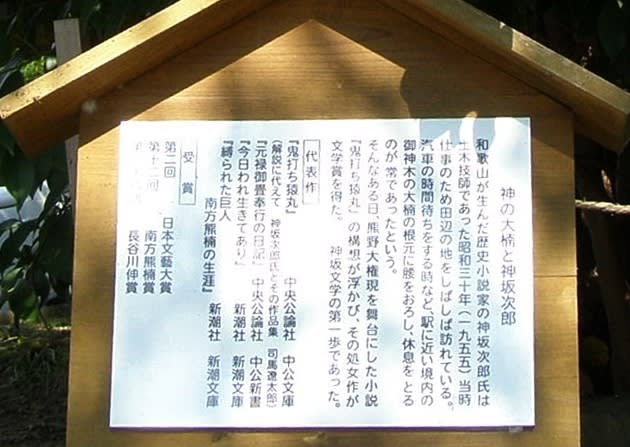 神の大楠と神坂次郎
和歌山が生んだ歴史小説家の神坂次郎氏は
土木技師であった昭和三十年(一九五五)当時
仕事のため田辺の地をしばしば訪れている。
汽車の時間待ちをする時など、駅に近い境内の
御神木の大楠の根元に腰をおろし、休息をとる
のが常であったという。
そんなある日、熊野大権現を舞台にした小説
『鬼打ち猿丸』の構想が浮かび、その処女作が
文学賞を得た。 神坂文学の第一歩であった。
代表作
『鬼打ち猿丸』 中央公論社 中公文庫
(解説に代えて 神坂次郎氏とその作品集 司馬遼太郎)
『元禄御畳奉行の日記』 中央公論社 中公新書
『今日われ生きてあり』 新潮社 新潮文庫
『縛られた巨人
南方熊楠の生涯』 新潮社 新潮文庫
受賞
第二回 日本文藝大賞
第十二回 南方熊楠賞
長谷川伸賞